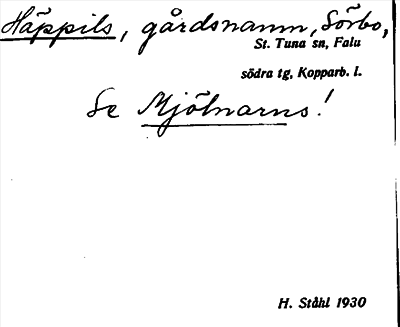 Häppils, gårdsnamn, Sörbo,
St. Tuna sn, Falu
södra tg, Kopparb. l.
Se Mjölnarns!
H. Ståhl 1930